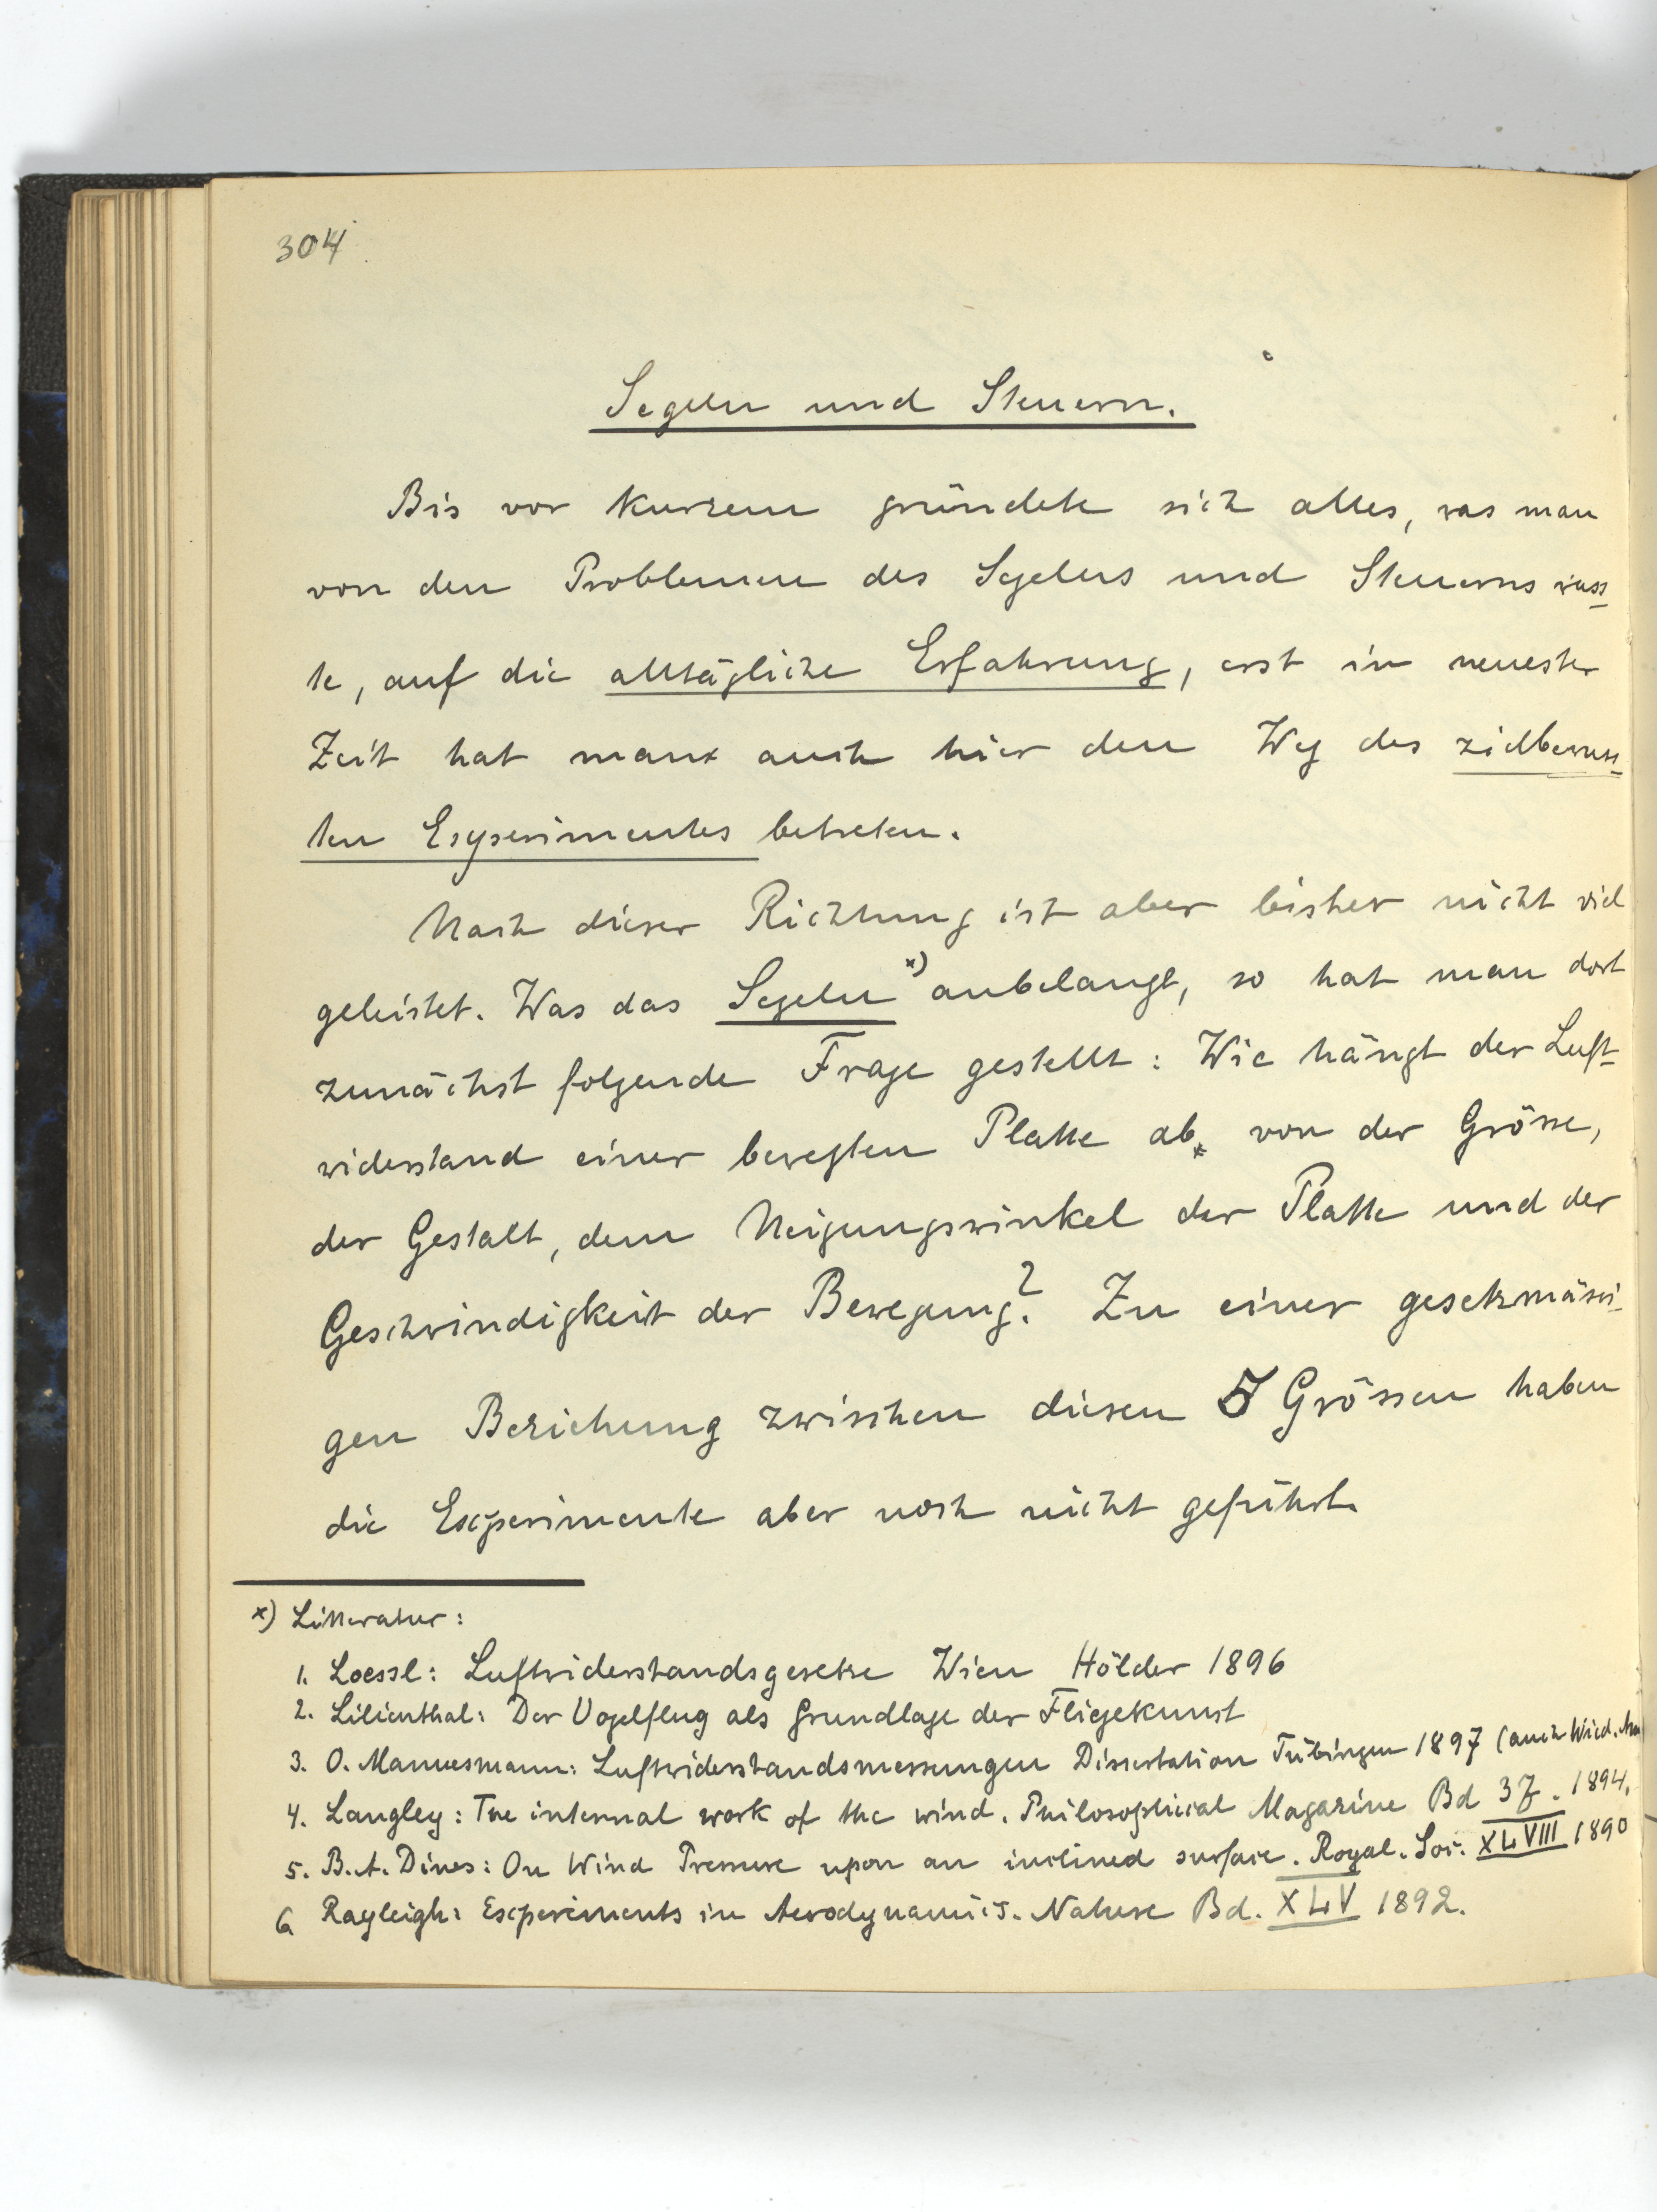 304.
Segeln und Steuern.
Bis vor kurzem gründete sich alles, was man
von den Problemen des Segelns und Steuerns wuss-
te, auf die alltägliche Erfahrung, erst in neuester
Zeit hat man auch hier den Weg des zielbewuss-
ten Experimentes betreten.
Nach dieser Richtung ist aber bisher nicht viel
geleistet. Was das Segeln x) anbelangt, so hat man dort
zunächst folgende Frage gestellt: Wie hängt der Luft-
widerstand einer bewegten Platte ab von der Grösse,
der Gestalt, dem Neigungswinkel der Platte und der
Geschwindigkeit der Bewegung? Zu einer gesetzmässi-
gen Beziehung zwischen diesen 5 Grössen haben
die Experimente aber noch nicht geführt.
x) Litteratur:
1. Loessl: Luftwiderstandsgesetze Wien Hölder 1896
2. Lilienthal: Der Vogelflug als Grundlage der Fliegekunst
3. O. Mannesmann: Luftwiderstandsmessungen Dissertation Tübingen 1897 (auch Wied. Ann
4. Langley: The internal work of the wind. Philosophical Magazine Bd 37. 1894.
5. B.A. Dines: On Wind Pressure upon an inclined surface. Royal. Soc. XLVIII 1890
6 Rayleigh: Experiments in Aerodynamics. Nature Bd. XLV 1892.